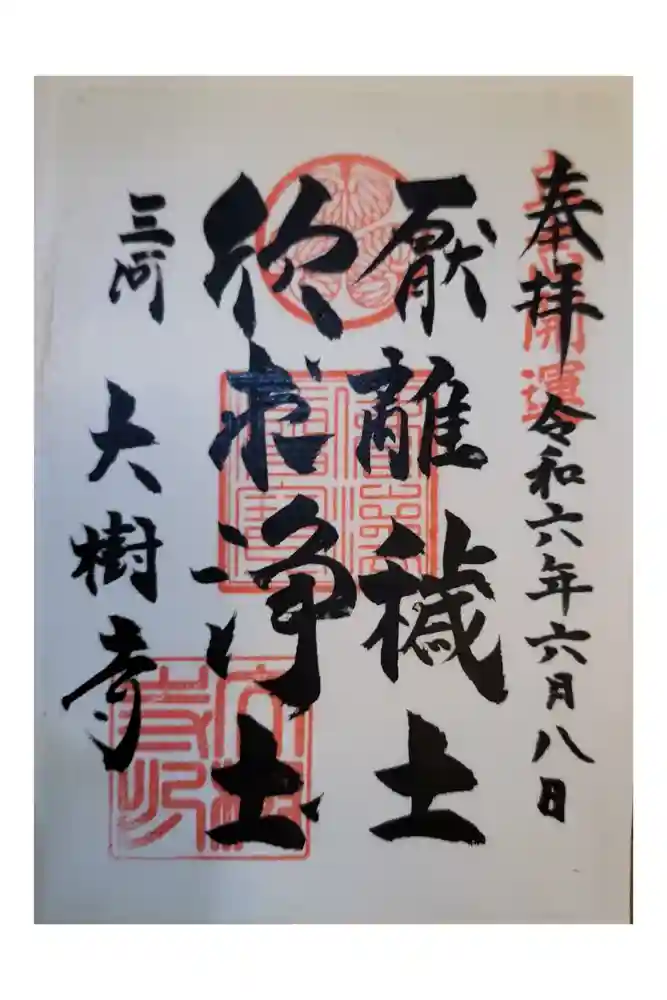 奉拝 令和六年六月八日
厭離穢土
欣求浄土
三河 大樹寺
開運